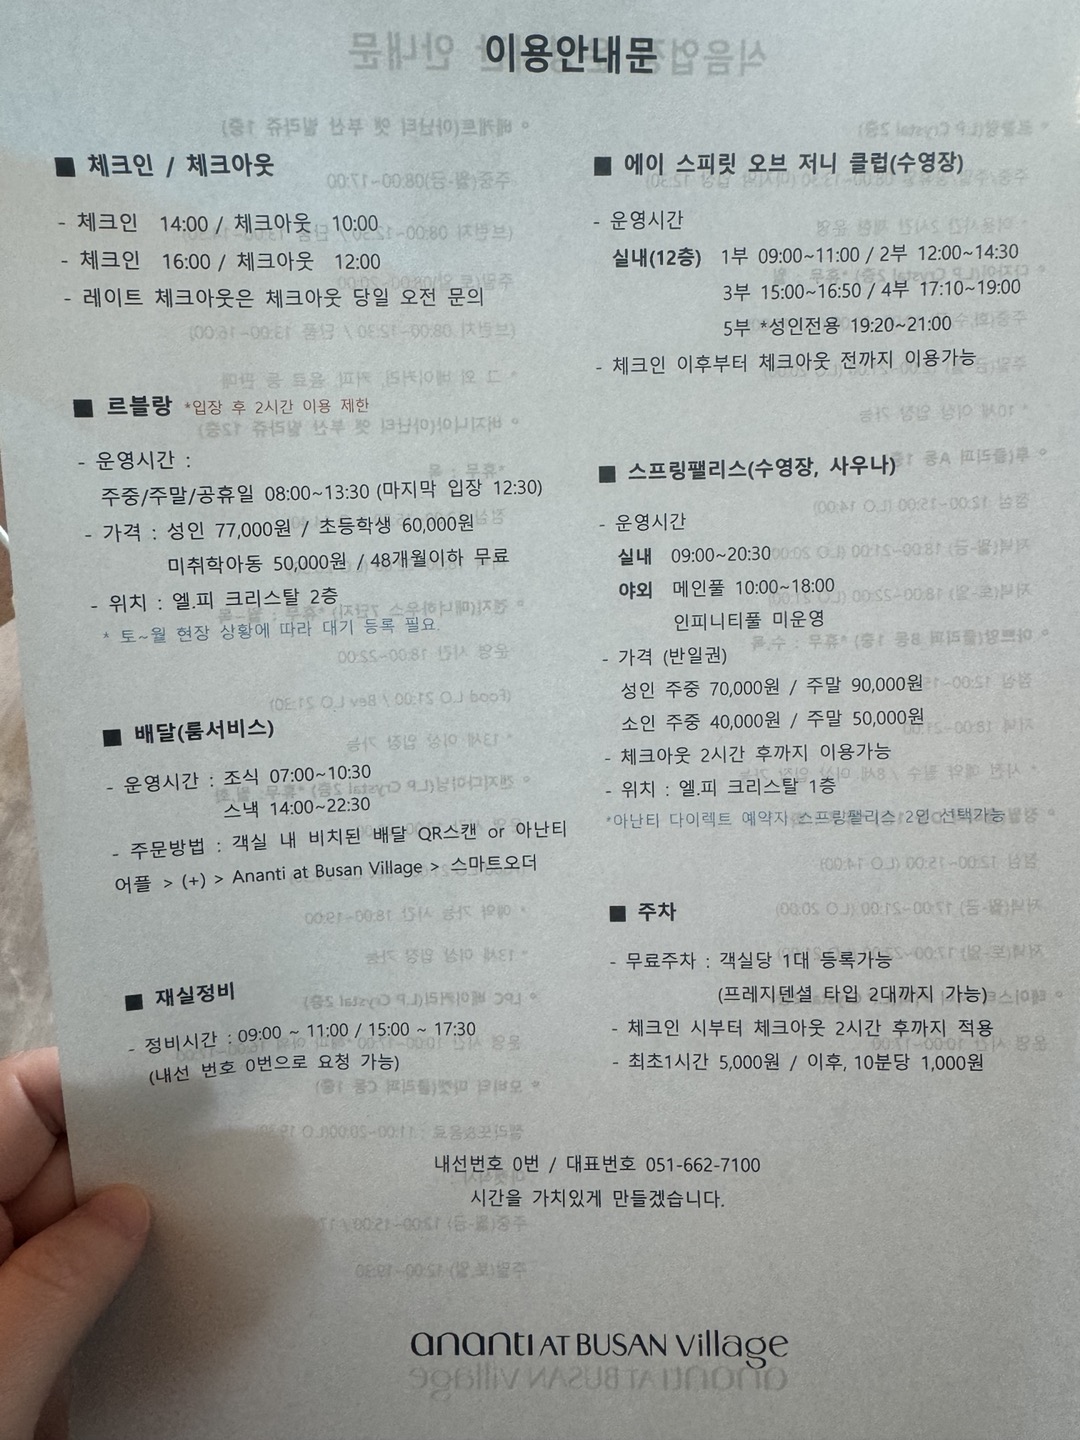 이용안내문
■ 체크인 / 체크아웃
- 체크인 14:00 / 체크아웃 10:00
- 체크인 16:00 / 체크아웃 12:00
- 레이트 체크아웃은 체크아웃 당일 오전 문의
■ 르블랑 *입장 후 2시간 이용 제한
- 운영시간 :
주중/주말/공휴일 08:00~13:30 (마지막 입장 12:30)
- 가격 : 성인 77,000원 / 초등학생 60,000원
미취학아동 50,000원 / 48개월이하 무료
- 위치 : 엘.피 크리스탈 2층
* 토~월 현장 상황에 따라 대기 등록 필요.
■ 배달(룸서비스)
- 운영시간 : 조식 07:00~10:30
스낵 14:00~22:30
- 주문방법 : 객실 내 비치된 배달 QR스캔 or 아난티
어플 > (+) > Ananti at Busan Village > 스마트오더
■ 재실정비
- 정비시간 : 09:00 ~ 11:00 / 15:00 ~ 17:30
(내선 번호 0번으로 요청 가능)
■ 에이 스피릿 오브 저니 클럽(수영장)
- 운영시간
실내(12층) 1부 09:00~11:00 / 2부 12:00~14:30
3부 15:00~16:50 / 4부 17:10~19:00
5부 *성인전용 19:20~21:00
- 체크인 이후부터 체크아웃 전까지 이용가능
■ 스프링팰리스(수영장, 사우나)
- 운영시간
실내 09:00~20:30
야외 메인풀 10:00~18:00
인피니티풀 미운영
- 가격 (반일권)
성인 주중 70,000원 / 주말 90,000원
소인 주중 40,000원 / 주말 50,000원
- 체크아웃 2시간 후까지 이용가능
- 위치 : 엘.피 크리스탈 1층
*아난티 다이렉트 예약자 스프링팰리스 2인 선택가능
■ 주차
- 무료주차 : 객실당 1대 등록가능
(프레지덴셜 타입 2대까지 가능)
- 체크인 시부터 체크아웃 2시간 후까지 적용
- 최초1시간 5,000원 / 이후, 10분당 1,000원
내선번호 0번 / 대표번호 051-662-7100
시간을 가치있게 만들겠습니다.
ananti AT BUSAN Village